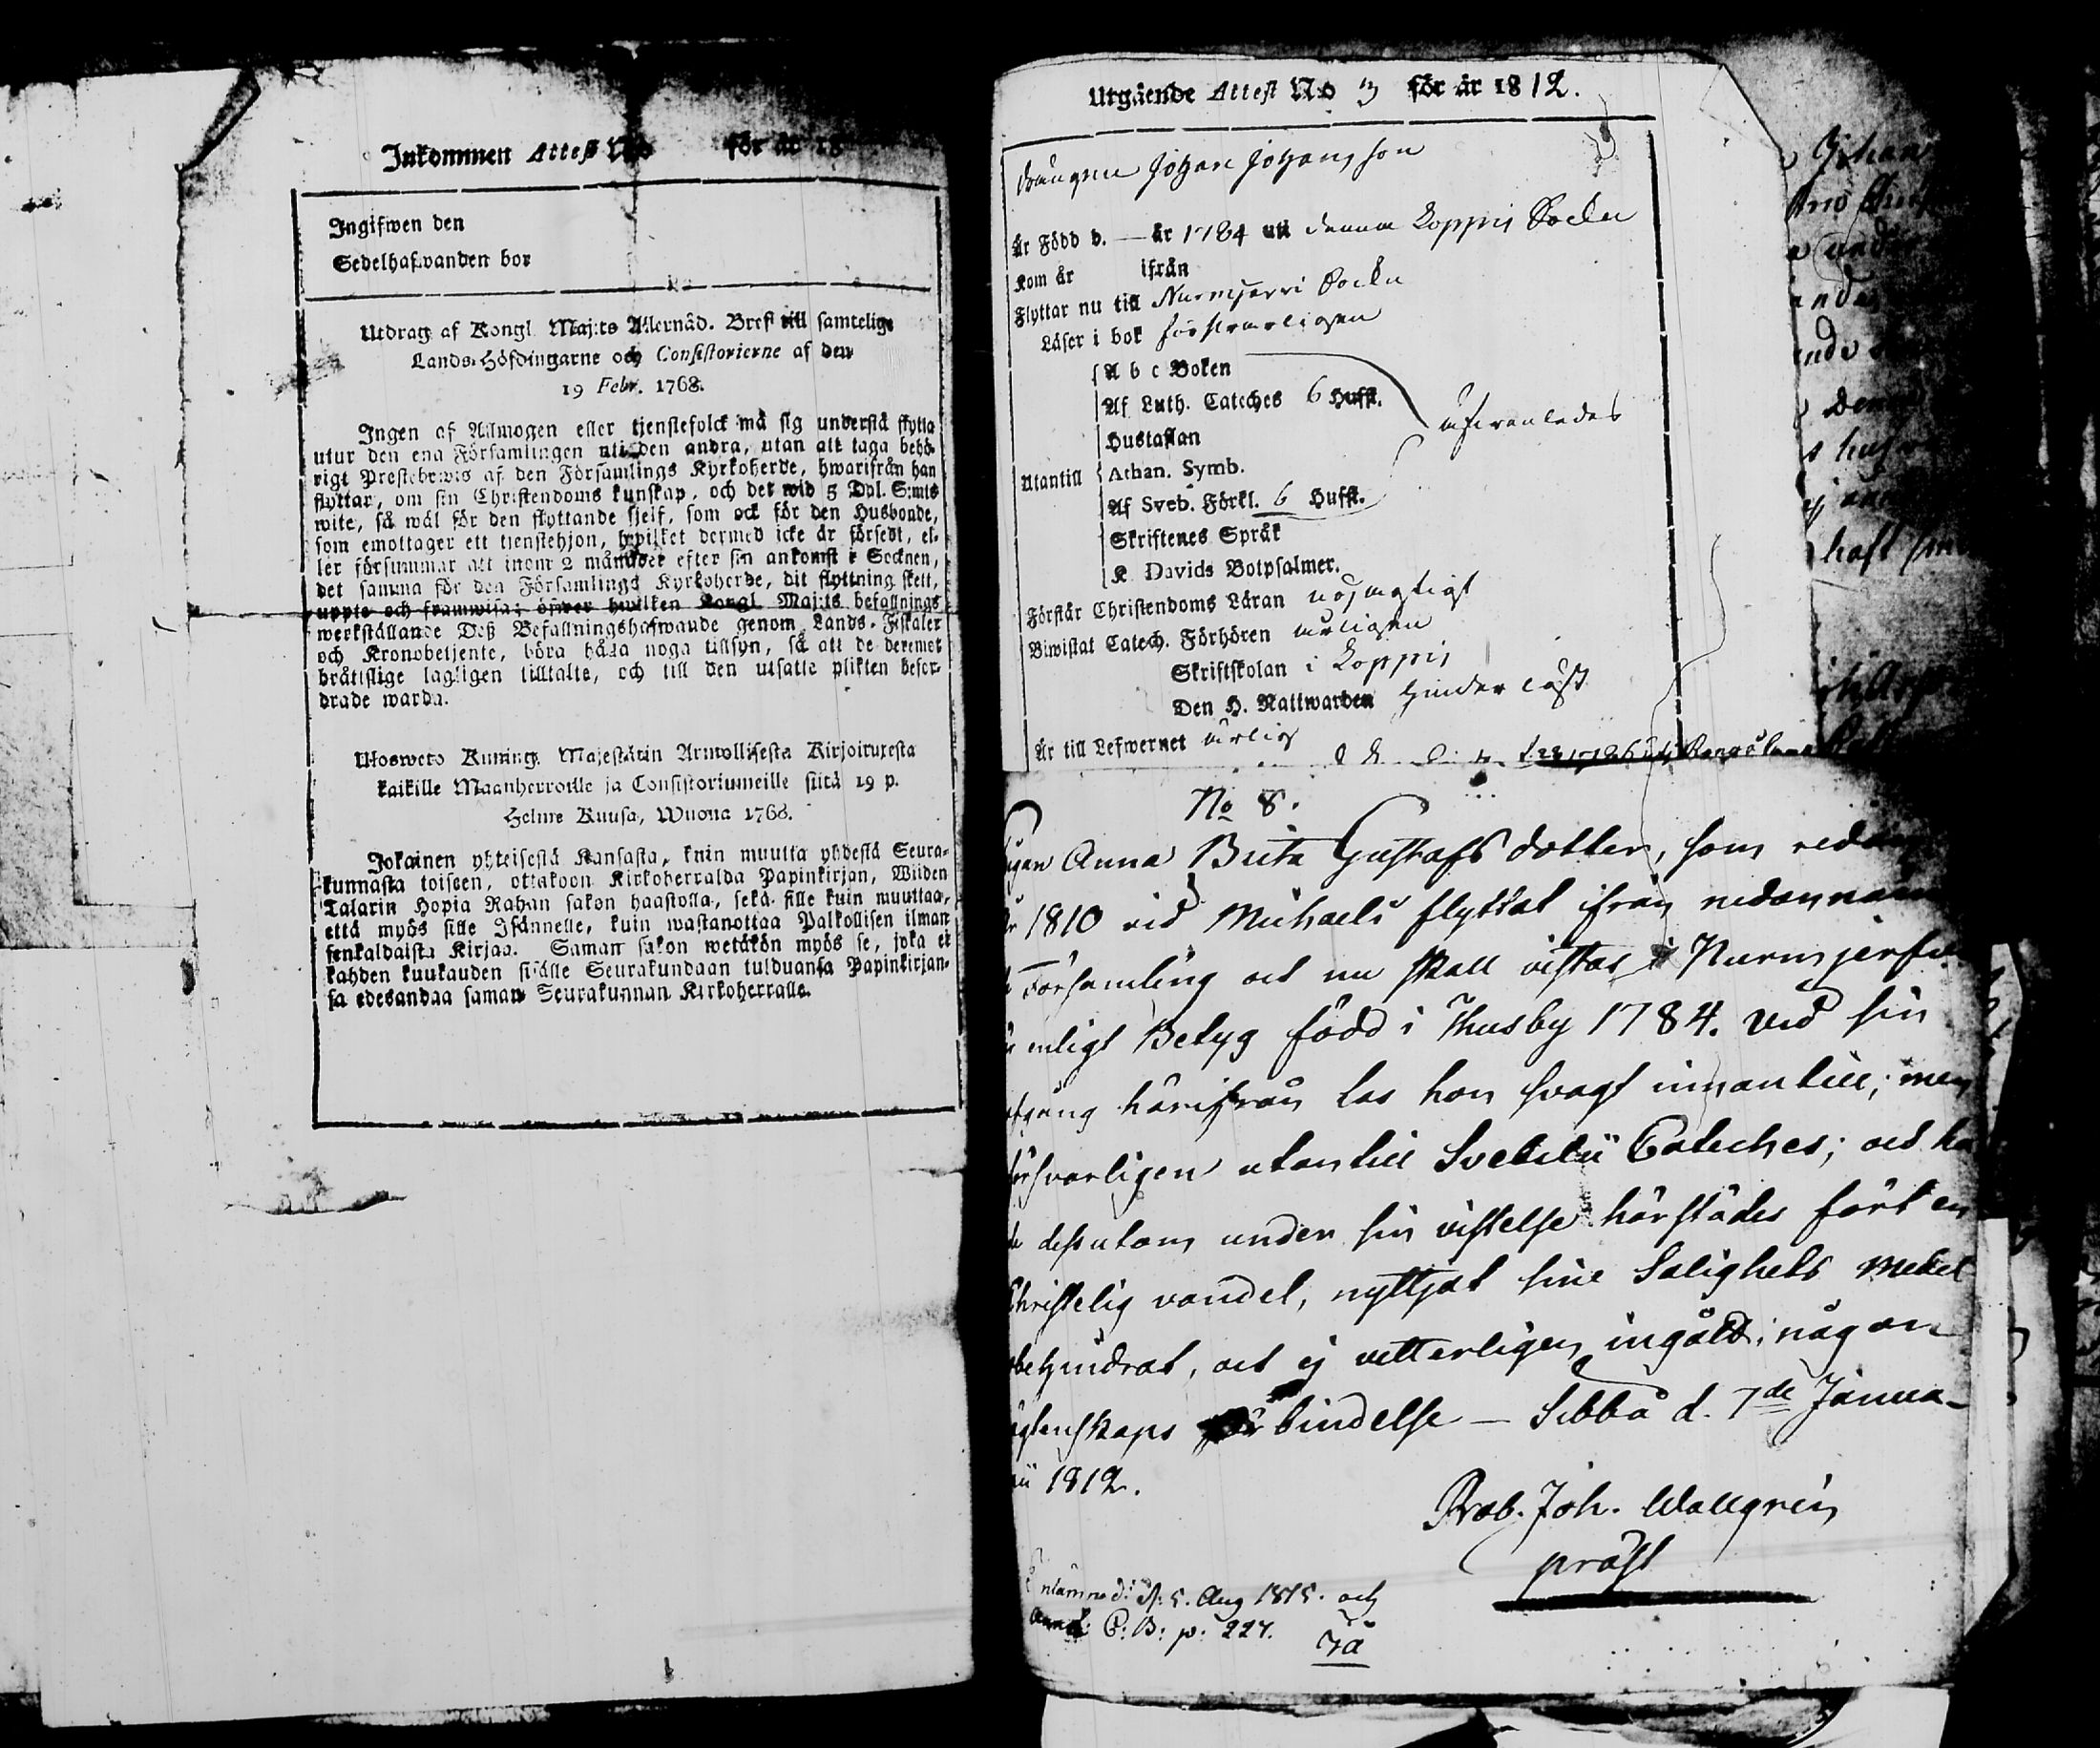 Inkommen Attest N:o för år 18
Ingifwen den
Sedelhafwanden bor
Utdrag af Kongl. Maj:ts Allernåd. Bref till samtelige
Lands-Höfdingarne och Consistorierne af den
19 Febr. 1768.
Ingen af Allmogen eller tjenstefolck må sig understå flytta
utur den ena Församlingen uti den andra, utan att taga behö-
rigt Prestebewis af den Församlings Kyrkoherde, hwarifrån han
flyttar, om sin Christendoms kunskap, och det wid 5 Dal. S:mts
wite, så wäl för den flyttande sjelf, som ock för den Husbonde,
som emottager ett tienstehjon, hwilket dermed icke är försedt, el-
ler försummar att inom 2 månader efter sin ankomst i Socknen,
det samma för den Församlings Kyrkoherde, dit flyttning skett,
uppte och framwisa; öfwer hwilken Kongl. Maj:ts befallnings
werkställande Deß Befallningshafwande genom Lands-Fiskaler
och Kronobetjente, böra hålla noga tillsyn, så att de deremot
bråttslige lagligen tilltalte, och till den utsatte plikten befor-
drade warda.
Ulosweto Kuning. Majestätin Armollisesta Kirjoituxesta
kaikille Maanherroille ja Consistoriumeille siitä 19 p.
Helme Kuusa, Wuona 1768.
Jokainen yhteisestä Kansasta, kuin muutta yhdestä Seura-
kunnasta toiseen, ottakoon Kirkoherralda Papinkirjan, Wiiden
Talarin Hopia Rahan sakon haastolla, sekä sille kuin muuttaa,
että myös sille Isännelle, kuin wastanottaa Palkollisen ilman
senkaldaista Kirjaa. Saman sakon wetäkön myös se, joka ei
kahden kuukauden sisälle Seurakundaan tulduansa Papinkirjan-
sa edesandaa saman Seurakunnan Kirkoherralle.
Utgående Attest N:o 3 för år 1812.
Drängen Johan Johansson
Är Född d. — år 1784 uti denna Loppis Sockn
Kom år ifrån
Flyttar nu till Nurmijervi Sockn
Läser i bok försvarligen
A b c Boken
Af Luth. Cateches 6 Hufst.
Hustaflan
Utantill Athan. Symb.
Af Sveb. Förkl. 6 Hufst.
Skriftenes Språk
K. Davids Botpsalmer.
Förstår Christendoms Läran nöjagtigt
Biwistat Catech. Förhören årligen
Skriftskolan i Loppis
Den H. Nattwarden hinderlöst
Är till Lefwernet ärlig
No 8.
Anna Brita Gustafs dotter, som redan
1810 vid Michaeli flyttat ifrån nedannämn
Församling och nu skall vistas i Nurmjerfvi
enligt Betyg född i Thusby 1784. Vid sin
afgång härifrån las hon svagt innantill; men
försvarligen utantill Svebilii Cateches; och ha
dessutom under sin vistelse härstädes fört en
Christelig vandel, nyttjat sine Salighets medel
obehindrat, och ej vetterligen ingådt i någon
ägtenskaps förbindelse — Sibbo d. 7de Janua-
rii 1812.
Prob. Joh. Wallgren
prost
d: 5. Aug 1815. och
C: B: p: 227.